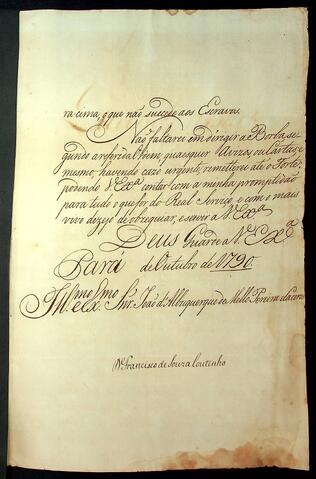 ra cima, o que não succede aos Escravos.
Não faltarei em dirigir a Borba se-
gundo a referida ordem quaesquer Avizos, ou Cartas, e
mesmo, havendo cazo urgente, remetterei até o Forte,
podendo V. Exª contar com a minha promptidão
para tudo o que for do Real Serviço, e com o mais
vivo dezejo de obzequiar, e servir a V. Exª
Deus Guarde a V. Exª
Pará de Outubro de 1790.
Illmo e Exmo Snr. João d'Albuquerque de Mello Pereira e Caceres
D. Francisco de Souza Coutinho